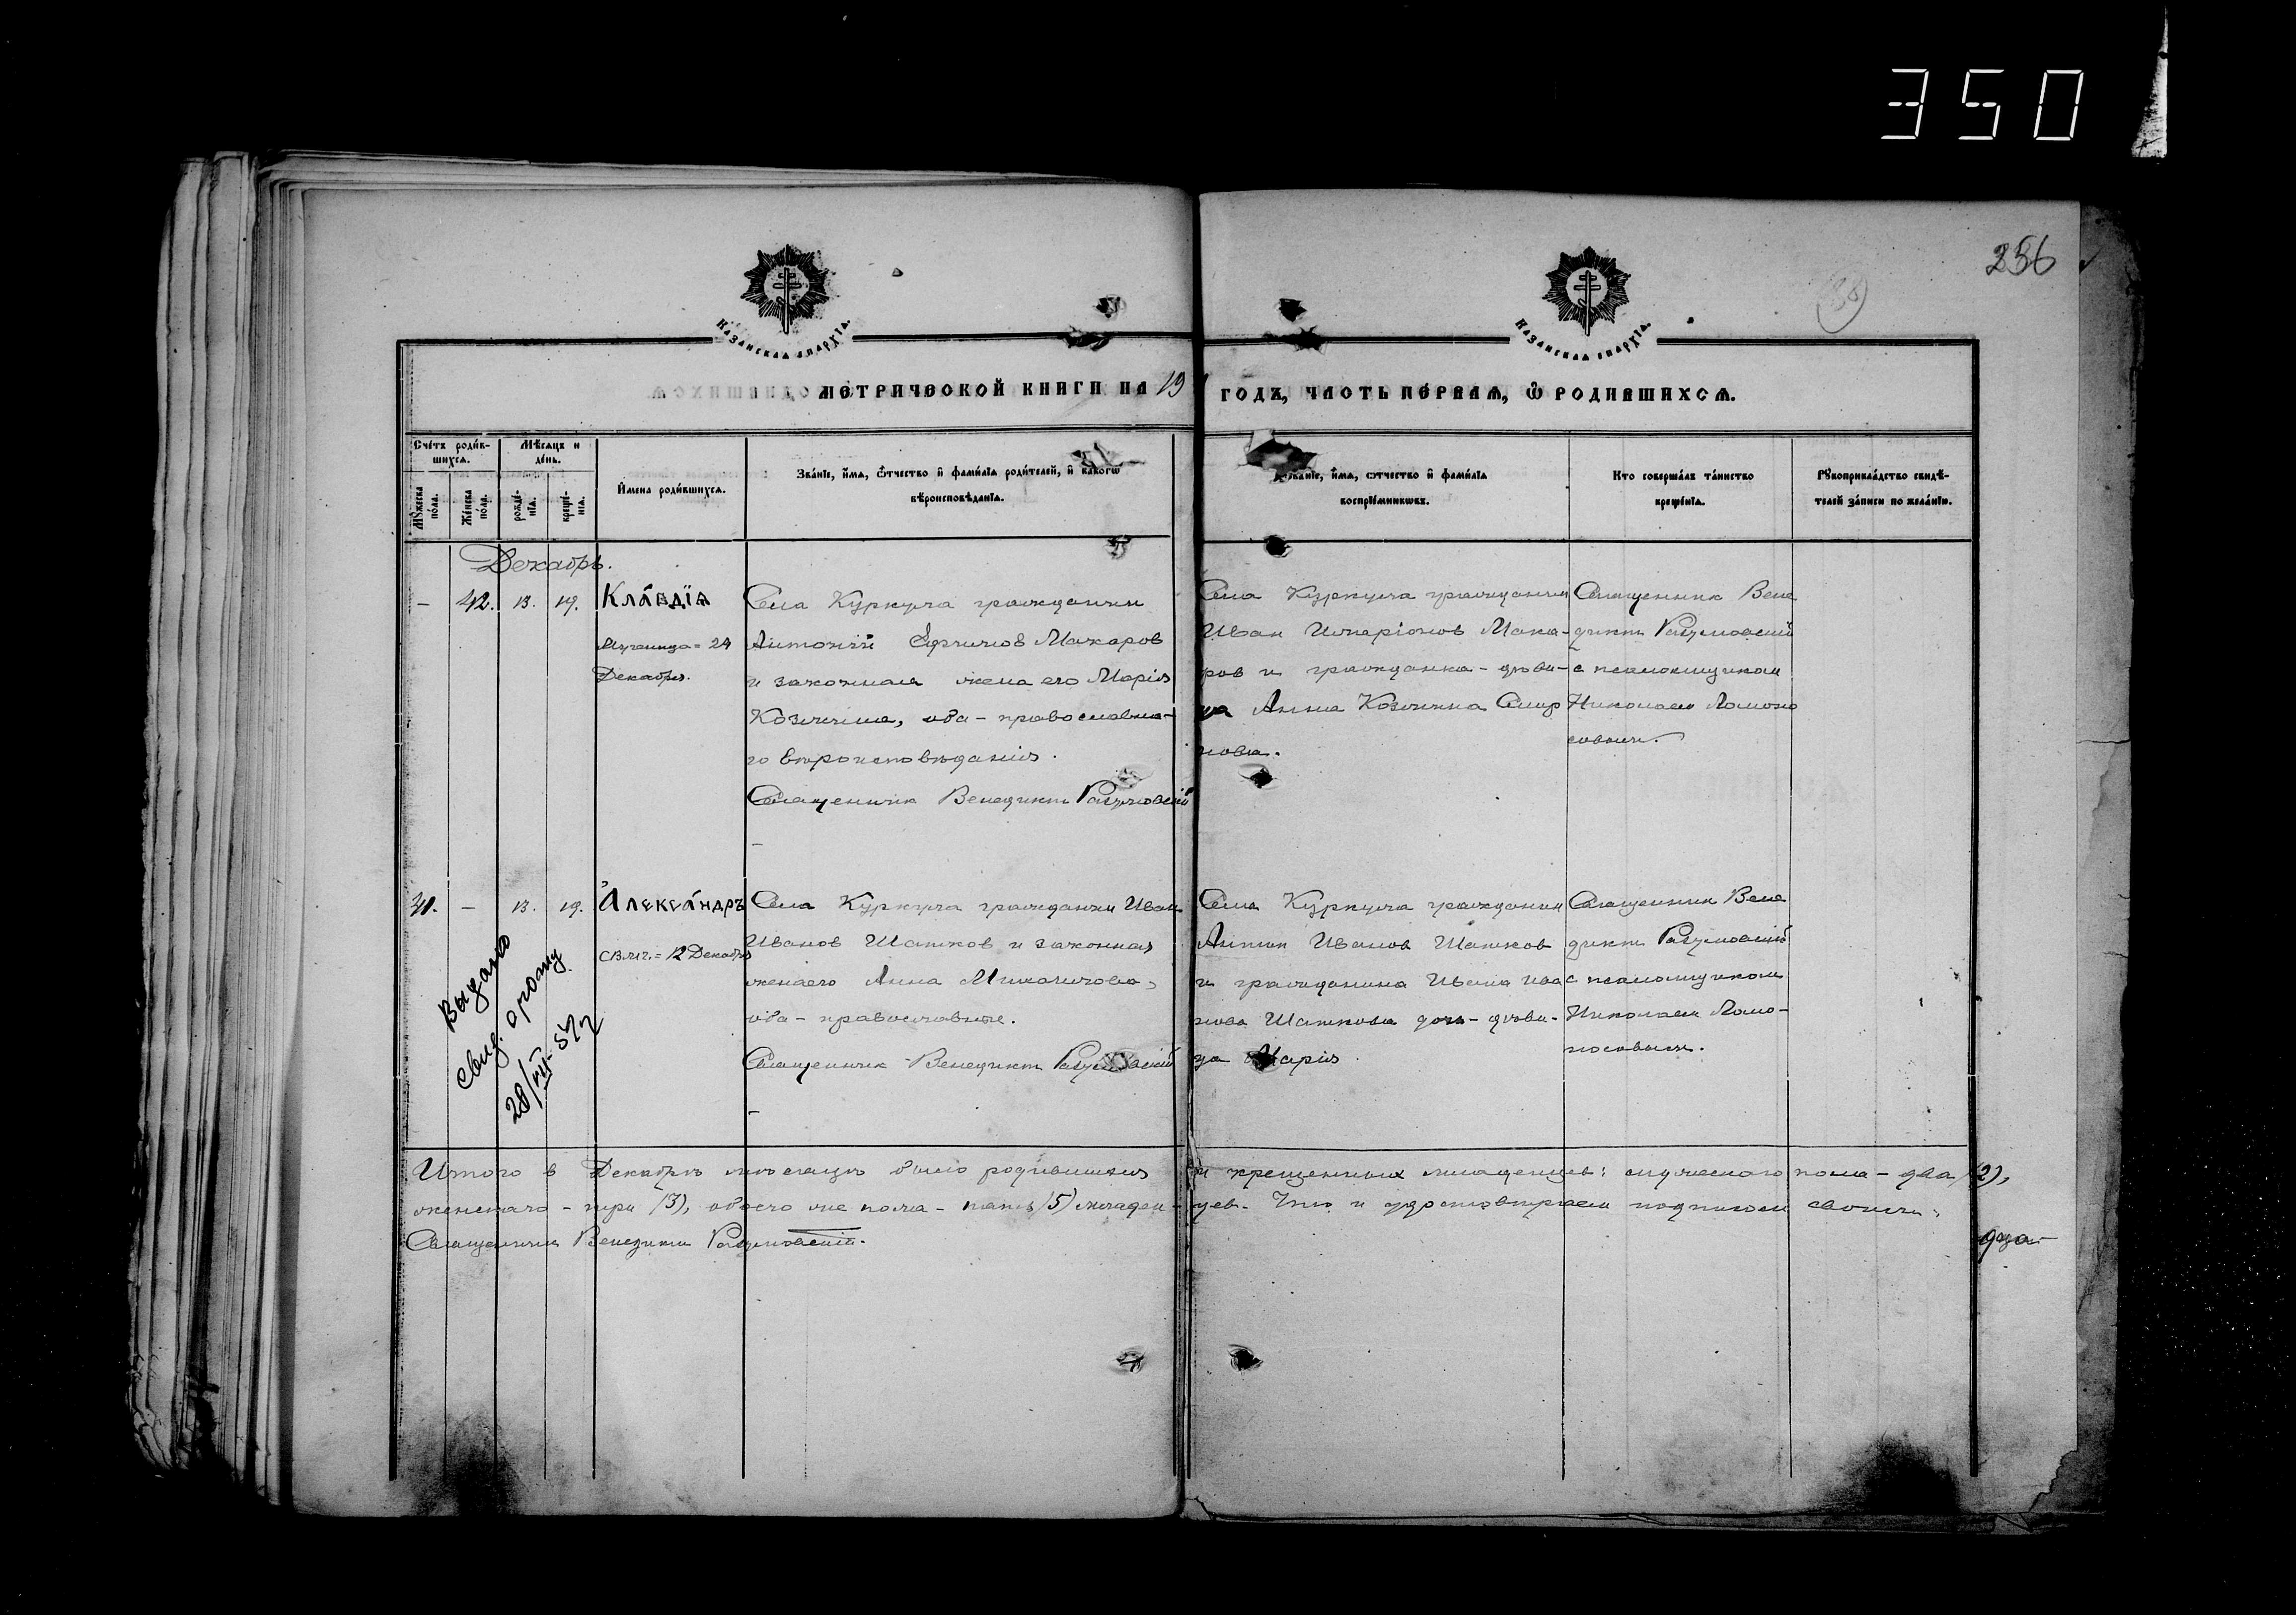 350
256
38
Казанская епархїѧ.
Казанская епархїѧ.
метрической книги на 19
годъ, часть первая, ѡ родившихсѧ.
Счетъ родившихсѧ.
Мѣсяцъ и день.
Мꙋжеска пола.
Женска пола.
рожденїѧ.
крещенїѧ.
Имена родившихсѧ.
Званїе, имѧ, ѿчество и фамилїѧ родителей, и какогѡ
вѣроисповѣданїѧ.
Званїе, имѧ, отчество и фамилїѧ
воспрїемникѡвъ.
Кто совершалъ таинство
крещенїѧ.
Рꙋкоприкладство свидѣ-
телей записи по желанїю.
Декабрь.
– 42. 13. 19. Клавдїѧ
Мученица = 24
Декабря.
Села Куркуля гражданин
Антоній Ефимов Макаров
и законная жена его Марія
Козмина, оба – православна-
го вѣроисповѣданія.
Священник Венедикт Разумовскій
Села Куркуля гражданин
Иван Иларіонов Мака-
ров и гражданка – дѣви-
ца Анна Козмина Смир
нова.
Священник Вене
дикт Разумовскій
с псаломщиком
Николаем Ломоно
совым.
31. – 13. 19. Александръ
свмч. = 12 Декабря
Села Куркуля гражданин Иван
Иванов Шашков и законная
жена его Анна Михаилова,
оба – православные.
Священник Венедикт Разумовскій
Села Куркуля гражданин
Антон Иванов Шашков
и гражданина Ивана Ива
нова Шашкова дочь – дѣви-
ца Марія.
Священник Вене
дикт Разумовскій
с псаломщиком
Николаем Ломо-
носовым.
Выдано
свид.
28/VII-57г
Итого в Декабрѣ мѣсяцѣ было родившихся и крещенных младенцев: мужескаго пола – два (2),
женскаго – три (3), обоего же пола – пять (5) младен-цев. Что и удостовѣряем подписом своим:
Священник Венедикт Разумовскій.